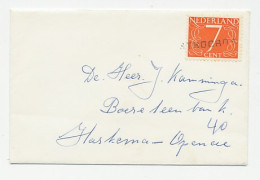 NEDERLAND
7
CENT
De Heer J. Kanninga.
Boeresteenbank
40
Harkema-Opeinde